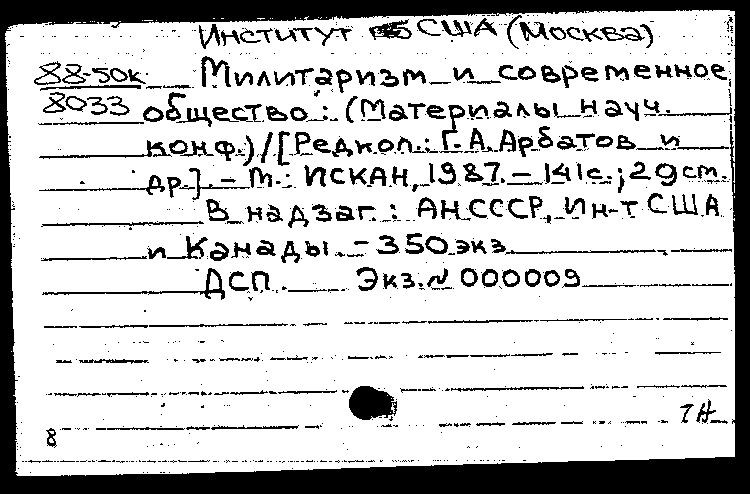 Институт США (Москва)
88-50к Милитаризм и современное
8033 общество: (Материалы науч.
конф.)/[Редкол.: Г.А.Арбатов и
др.]. - М.: ИСКАН, 1987. - 141с.; 29см.
В надзаг.: АН СССР, Ин-т США
и Канады. - 350экз
ДСП. Экз.№ 000009
8